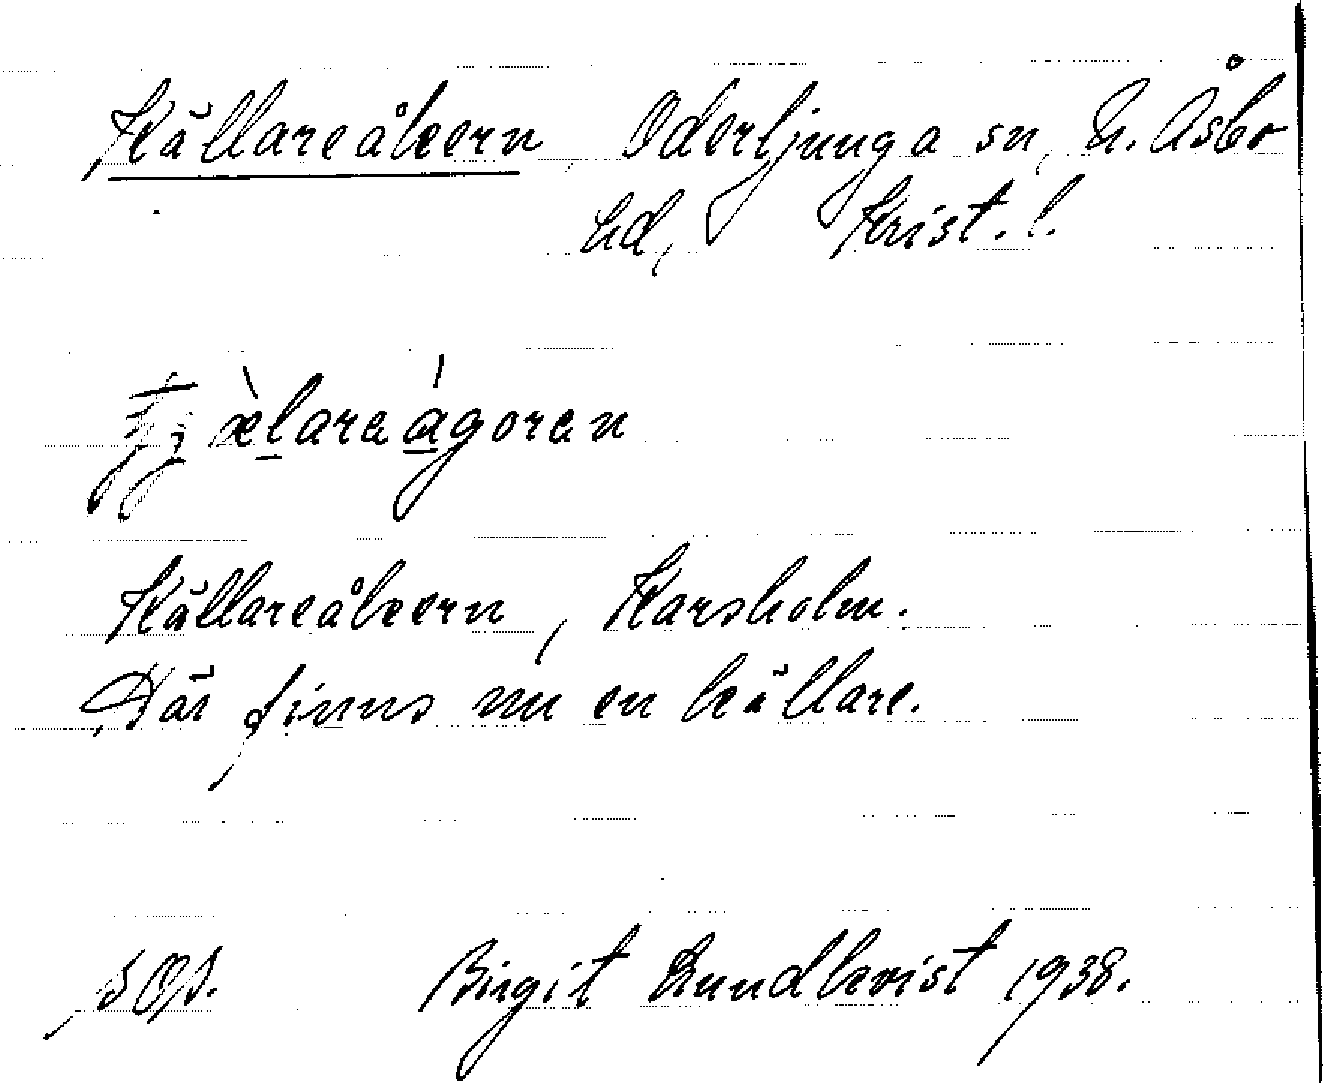 Källareåkern, Oderljunga sn, N. Åsbo
hd, Krist. l.
xælaraågoran
Källareåkern, Karsholm.
Där finns nu en källare.
SOA. Birgit Lundkvist 1938.